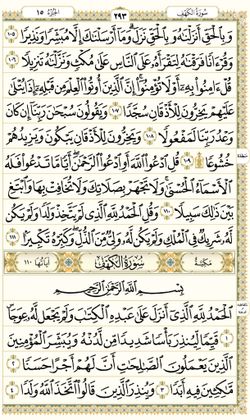 الجزء ١٥ ٢٩٣ سورة الكهف
وَبِالْحَقِّ أَنزَلْنَاهُ وَبِالْحَقِّ نَزَلَ وَمَا أَرْسَلْنَاكَ إِلَّا مُبَشِّرًا وَنَذِيرًا ١٠٥
وَقُرْآنًا فَرَقْنَاهُ لِتَقْرَأَهُ عَلَى النَّاسِ عَلَى مُكْثٍ وَنَزَّلْنَاهُ تَنزِيلًا ١٠٦
قُلْ آمِنُوا بِهِ أَوْ لَا تُؤْمِنُوا إِنَّ الَّذِينَ أُوتُوا الْعِلْمَ مِن قَبْلِهِ إِذَا يُتْلَى
عَلَيْهِمْ يَخِرُّونَ لِلْأَذْقَانِ سُجَّدًا ١٠٧ وَيَقُولُونَ سُبْحَانَ رَبِّنَا إِن كَانَ
وَعْدُ رَبِّنَا لَمَفْعُولًا ١٠٨ وَيَخِرُّونَ لِلْأَذْقَانِ يَبْكُونَ وَيَزِيدُهُمْ
خُشُوعًا ۩ ١٠٩ قُلِ ادْعُوا اللَّهَ أَوِ ادْعُوا الرَّحْمَنَ أَيًّا مَّا تَدْعُوا فَلَهُ
الْأَسْمَاءُ الْحُسْنَى وَلَا تَجْهَرْ بِصَلَاتِكَ وَلَا تُخَافِتْ بِهَا وَابْتَغِ
بَيْنَ ذَلِكَ سَبِيلًا ١١٠ وَقُلِ الْحَمْدُ لِلَّهِ الَّذِي لَمْ يَتَّخِذْ وَلَدًا وَلَمْ يَكُن
لَّهُ شَرِيكٌ فِي الْمُلْكِ وَلَمْ يَكُن لَّهُ وَلِيٌّ مِّنَ الذُّلِّ وَكَبِّرْهُ تَكْبِيرًا ١١١
مكية سورة الكهف آياتها ١١٠
بِسْمِ اللَّهِ الرَّحْمَنِ الرَّحِيمِ
الْحَمْدُ لِلَّهِ الَّذِي أَنزَلَ عَلَى عَبْدِهِ الْكِتَابَ وَلَمْ يَجْعَل لَّهُ عِوَجًا ١
قَيِّمًا لِّيُنذِرَ بَأْسًا شَدِيدًا مِّن لَّدُنْهُ وَيُبَشِّرَ الْمُؤْمِنِينَ
الَّذِينَ يَعْمَلُونَ الصَّالِحَاتِ أَنَّ لَهُمْ أَجْرًا حَسَنًا ٢
مَّاكِثِينَ فِيهِ أَبَدًا ٣ وَيُنذِرَ الَّذِينَ قَالُوا اتَّخَذَ اللَّهُ وَلَدًا ٤